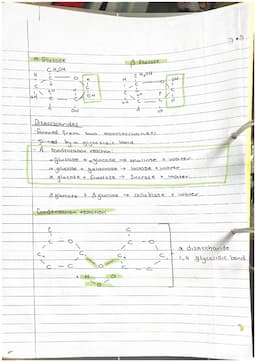 α Glucose
β Glucose
CH₂OH
CH₂OH
Disaccharides
- Formed from two monosaccharides
- Joined by a glycosidic bond
- A condensation reaction:
α glucose + α glucose → maltose + water
α glucose + galactose → lactose + water
α glucose + fructose → sucrose + water
β glucose + β glucose → cellobiose + water
Condensation reaction
a disaccharide
1,4 glycosidic bond